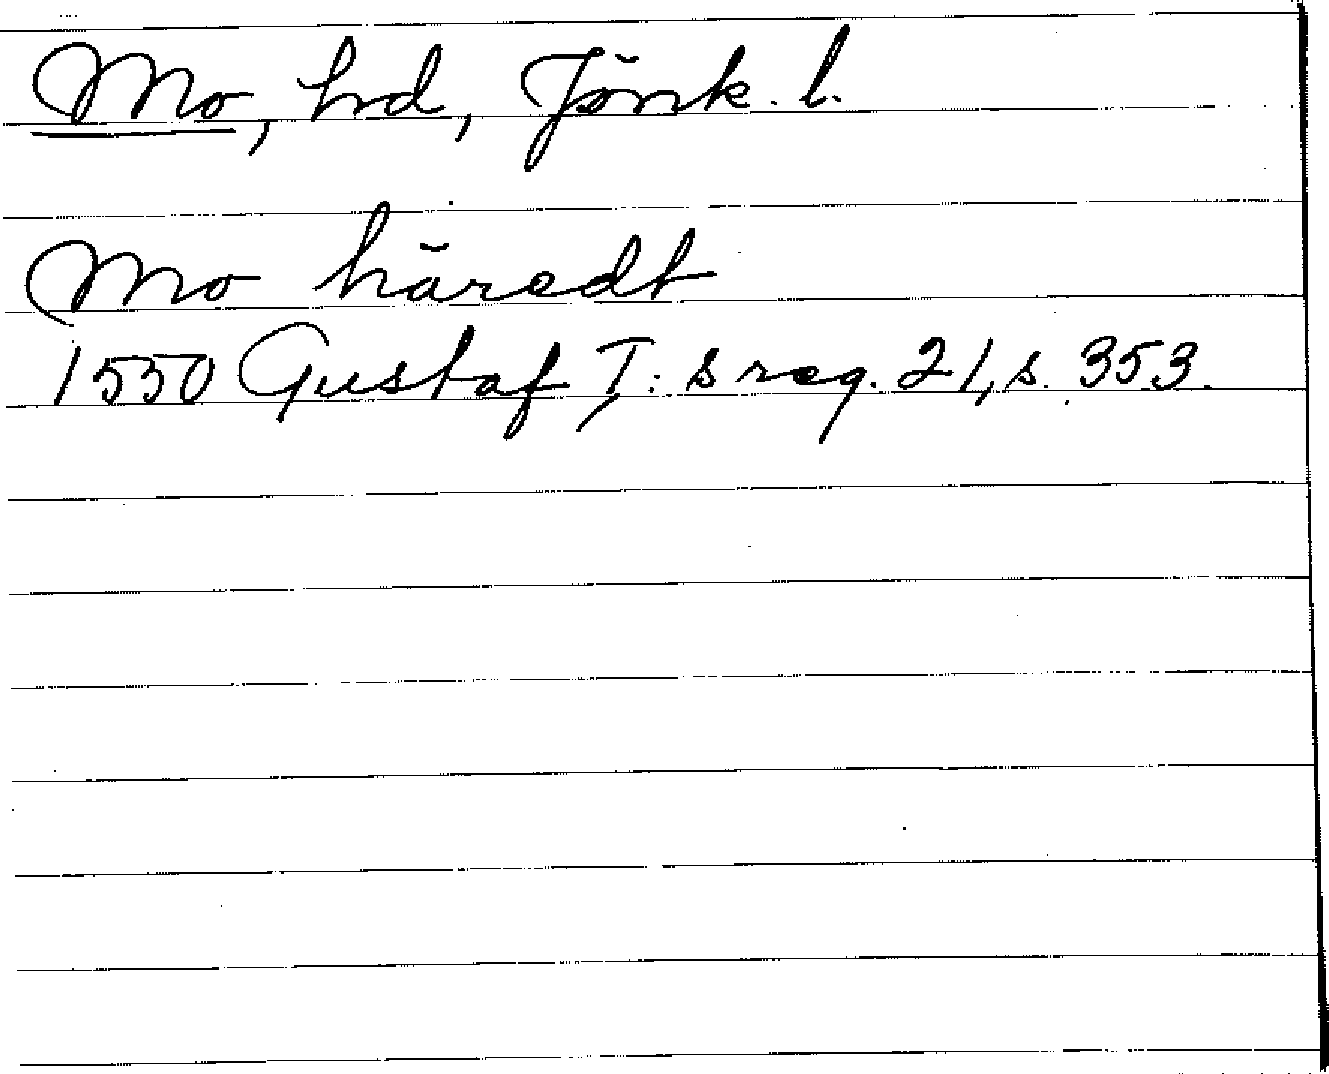 Mo, hd, Jönk. l.
Mo häredt
1550 Gustaf I:s reg. 21, s. 353.